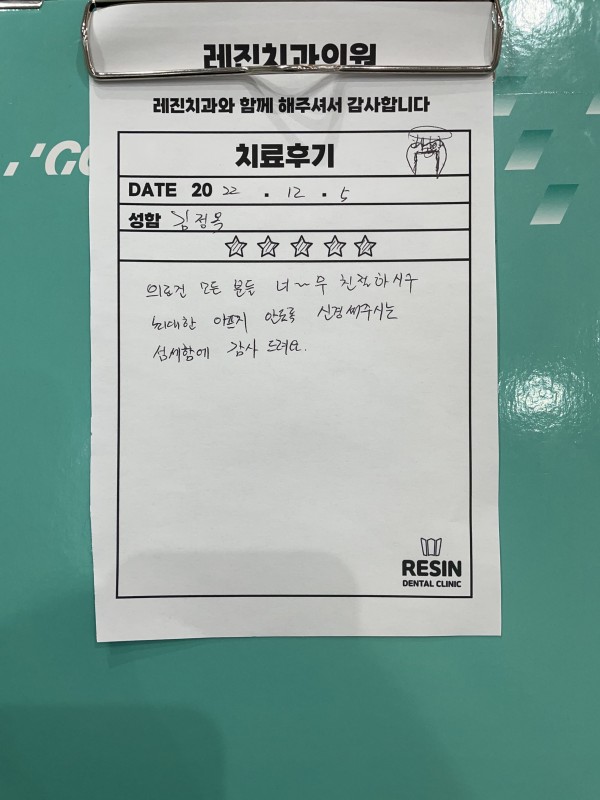 레진치과의원
레진치과와 함께 해주셔서 감사합니다
치료후기
DATE 20 22 . 12 . 5
성함 김정옥
의료진 모든 분들 너~무 친절하시구
최대한 아프지 안도록 신경써주시는
섬세함에 감사 드려요.
RESIN
DENTAL CLINIC